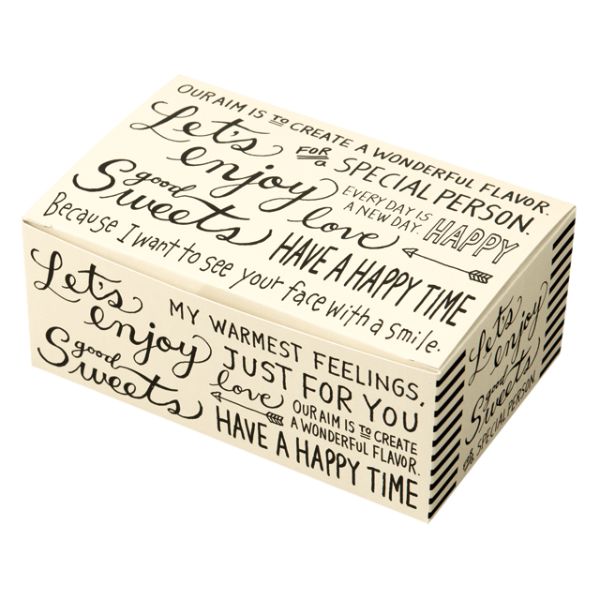 OUR AIM IS TO CREATE A WONDERFUL FLAVOR.
Let's enjoy
FOR a SPECIAL PERSON.
good Sweets
love
EVERY DAY IS
A NEW DAY.
HAPPY
HAVE A HAPPY TIME
Because I want to see your face with a smile.
Let's enjoy
good Sweets
MY WARMEST FEELINGS,
JUST FOR YOU
love
OUR AIM IS TO CREATE
A WONDERFUL FLAVOR.
HAVE A HAPPY TIME
Let's enjoy
good Sweets
FOR a SPECIAL PERSON.